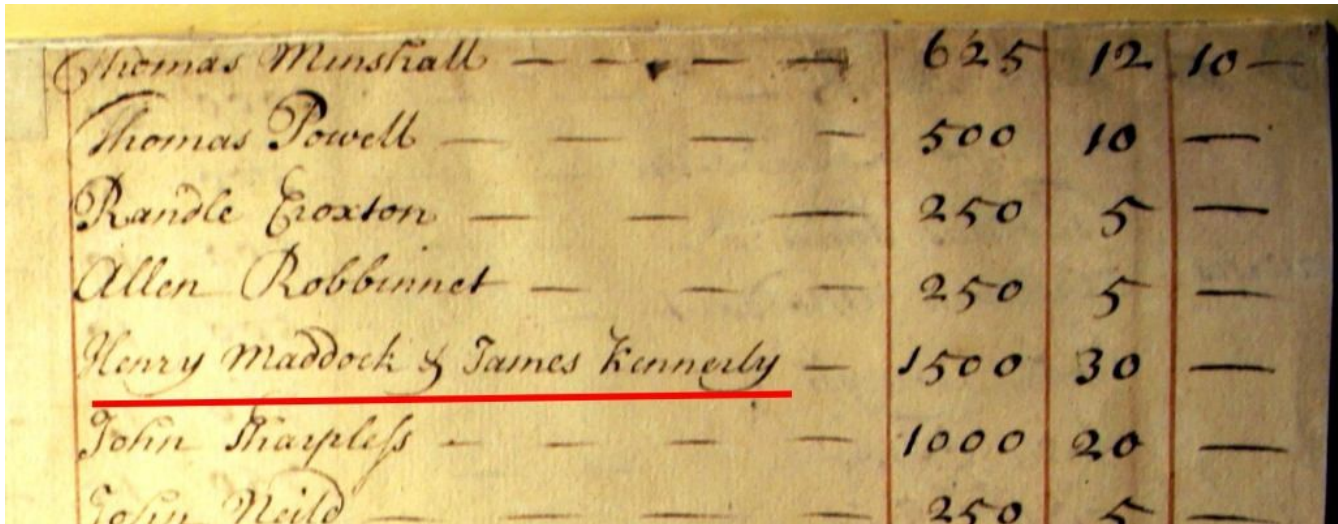 Thomas Minshall — — — — 625 12 10 —
Thomas Powell — — — — 500 10 —
Randle Croxton — — — 250 5 —
Allen Robbinnet — — — 250 5 —
Henry Maddock & James Kennerly — 1500 30 —
John Sharpless — — — — 1000 20 —
John Neild — — — — 250 5 —